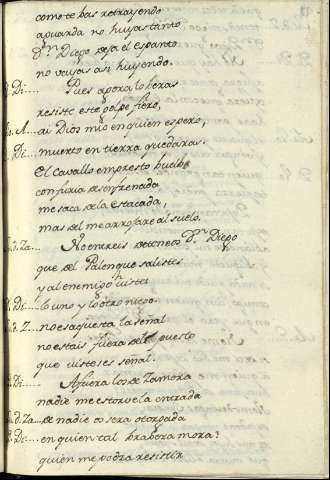 como te bas retrayendo
aguarda no huyas tanto
D.ⁿ Diego deja el espanto
no vayas asi huyendo.
D. Di.... Pues agora lo beras
resiste este golpe fiero,
A.... ai Dios mio en quien espero,
Di.... muerto en tierra quedaras.
El Cavallo en presto buelo
con furia desenfrenada
me saca de la estacada,
mas del me arrojare al suelo.
d. Za... No entreis deteneos D.ⁿ Diego
que del Palenque salistes
y al enemigo
D. Di.... lo uno y lo otro niego.
d. Z... no es aquesta la señal
no estais fuera del puesto
que vistes señal.
D. Di.... Afuera los de Zamora
nadie me estorve la entrada
d. Za... de nadie os sera otorgada
D. Di.... en quien tal brabeza mora?
quien me podra resistir